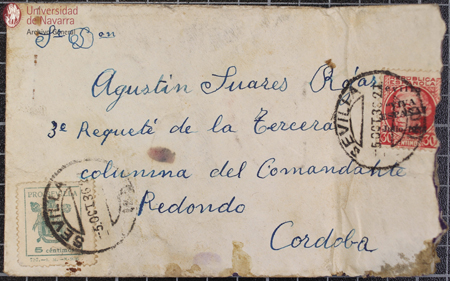 Universidad
de Navarra
Archivo General
Sr Don
Agustin Suares
3º Requeté de la Tercera
columna del Comandante
Redondo
Cordoba
SEVILLA
-5 OCT. 36
REPUBLICA
30
SEVILLA
-5 OCT. 36
5 centimos